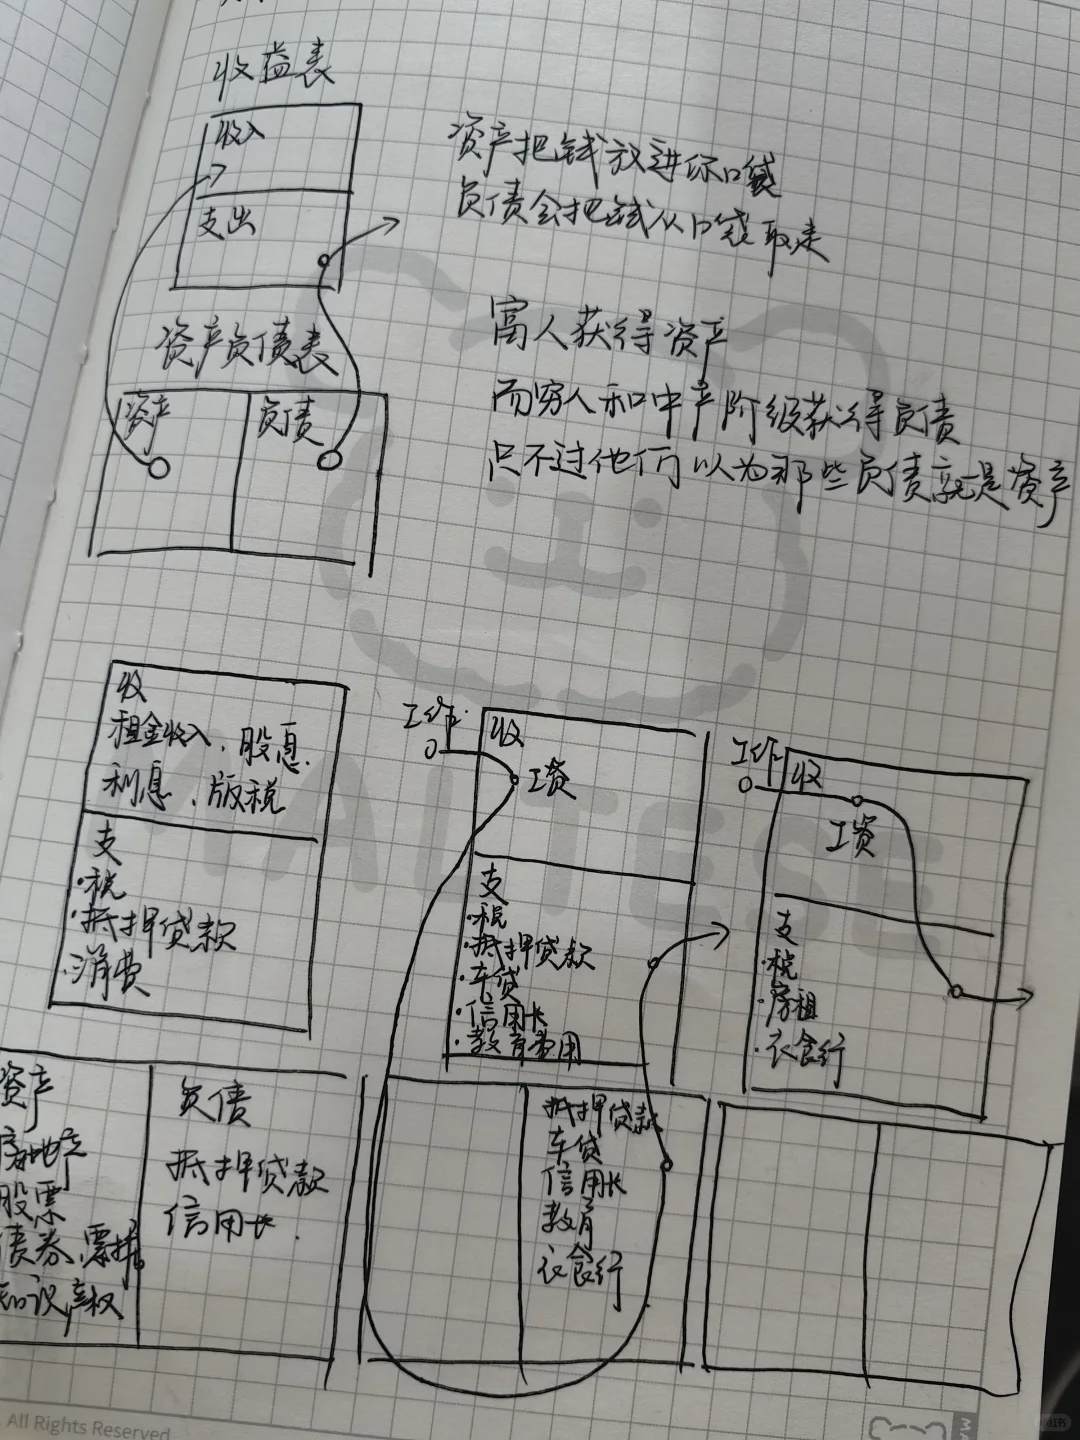 收益表
收入
支出
资产把钱放进你口袋
负债会把钱从口袋取走
资产负债表
资产
负债
富人获得资产
而穷人和中产阶级获得负债
只不过他们以为那些负债就是资产
收
租金收入、股息、
利息、版税
支
·税
·抵押贷款
·消费
资产
房地产
股票
债券、票据
知识产权
负债
抵押贷款
信用卡.
工作
收
工资
支
·税
·抵押贷款
·车贷
·信用卡
·教育费用
抵押贷款
车贷
信用卡
教育
衣食行
工作
收
工资
支
·税
·房租
·衣食行
MALTESE
All Rights Reserved